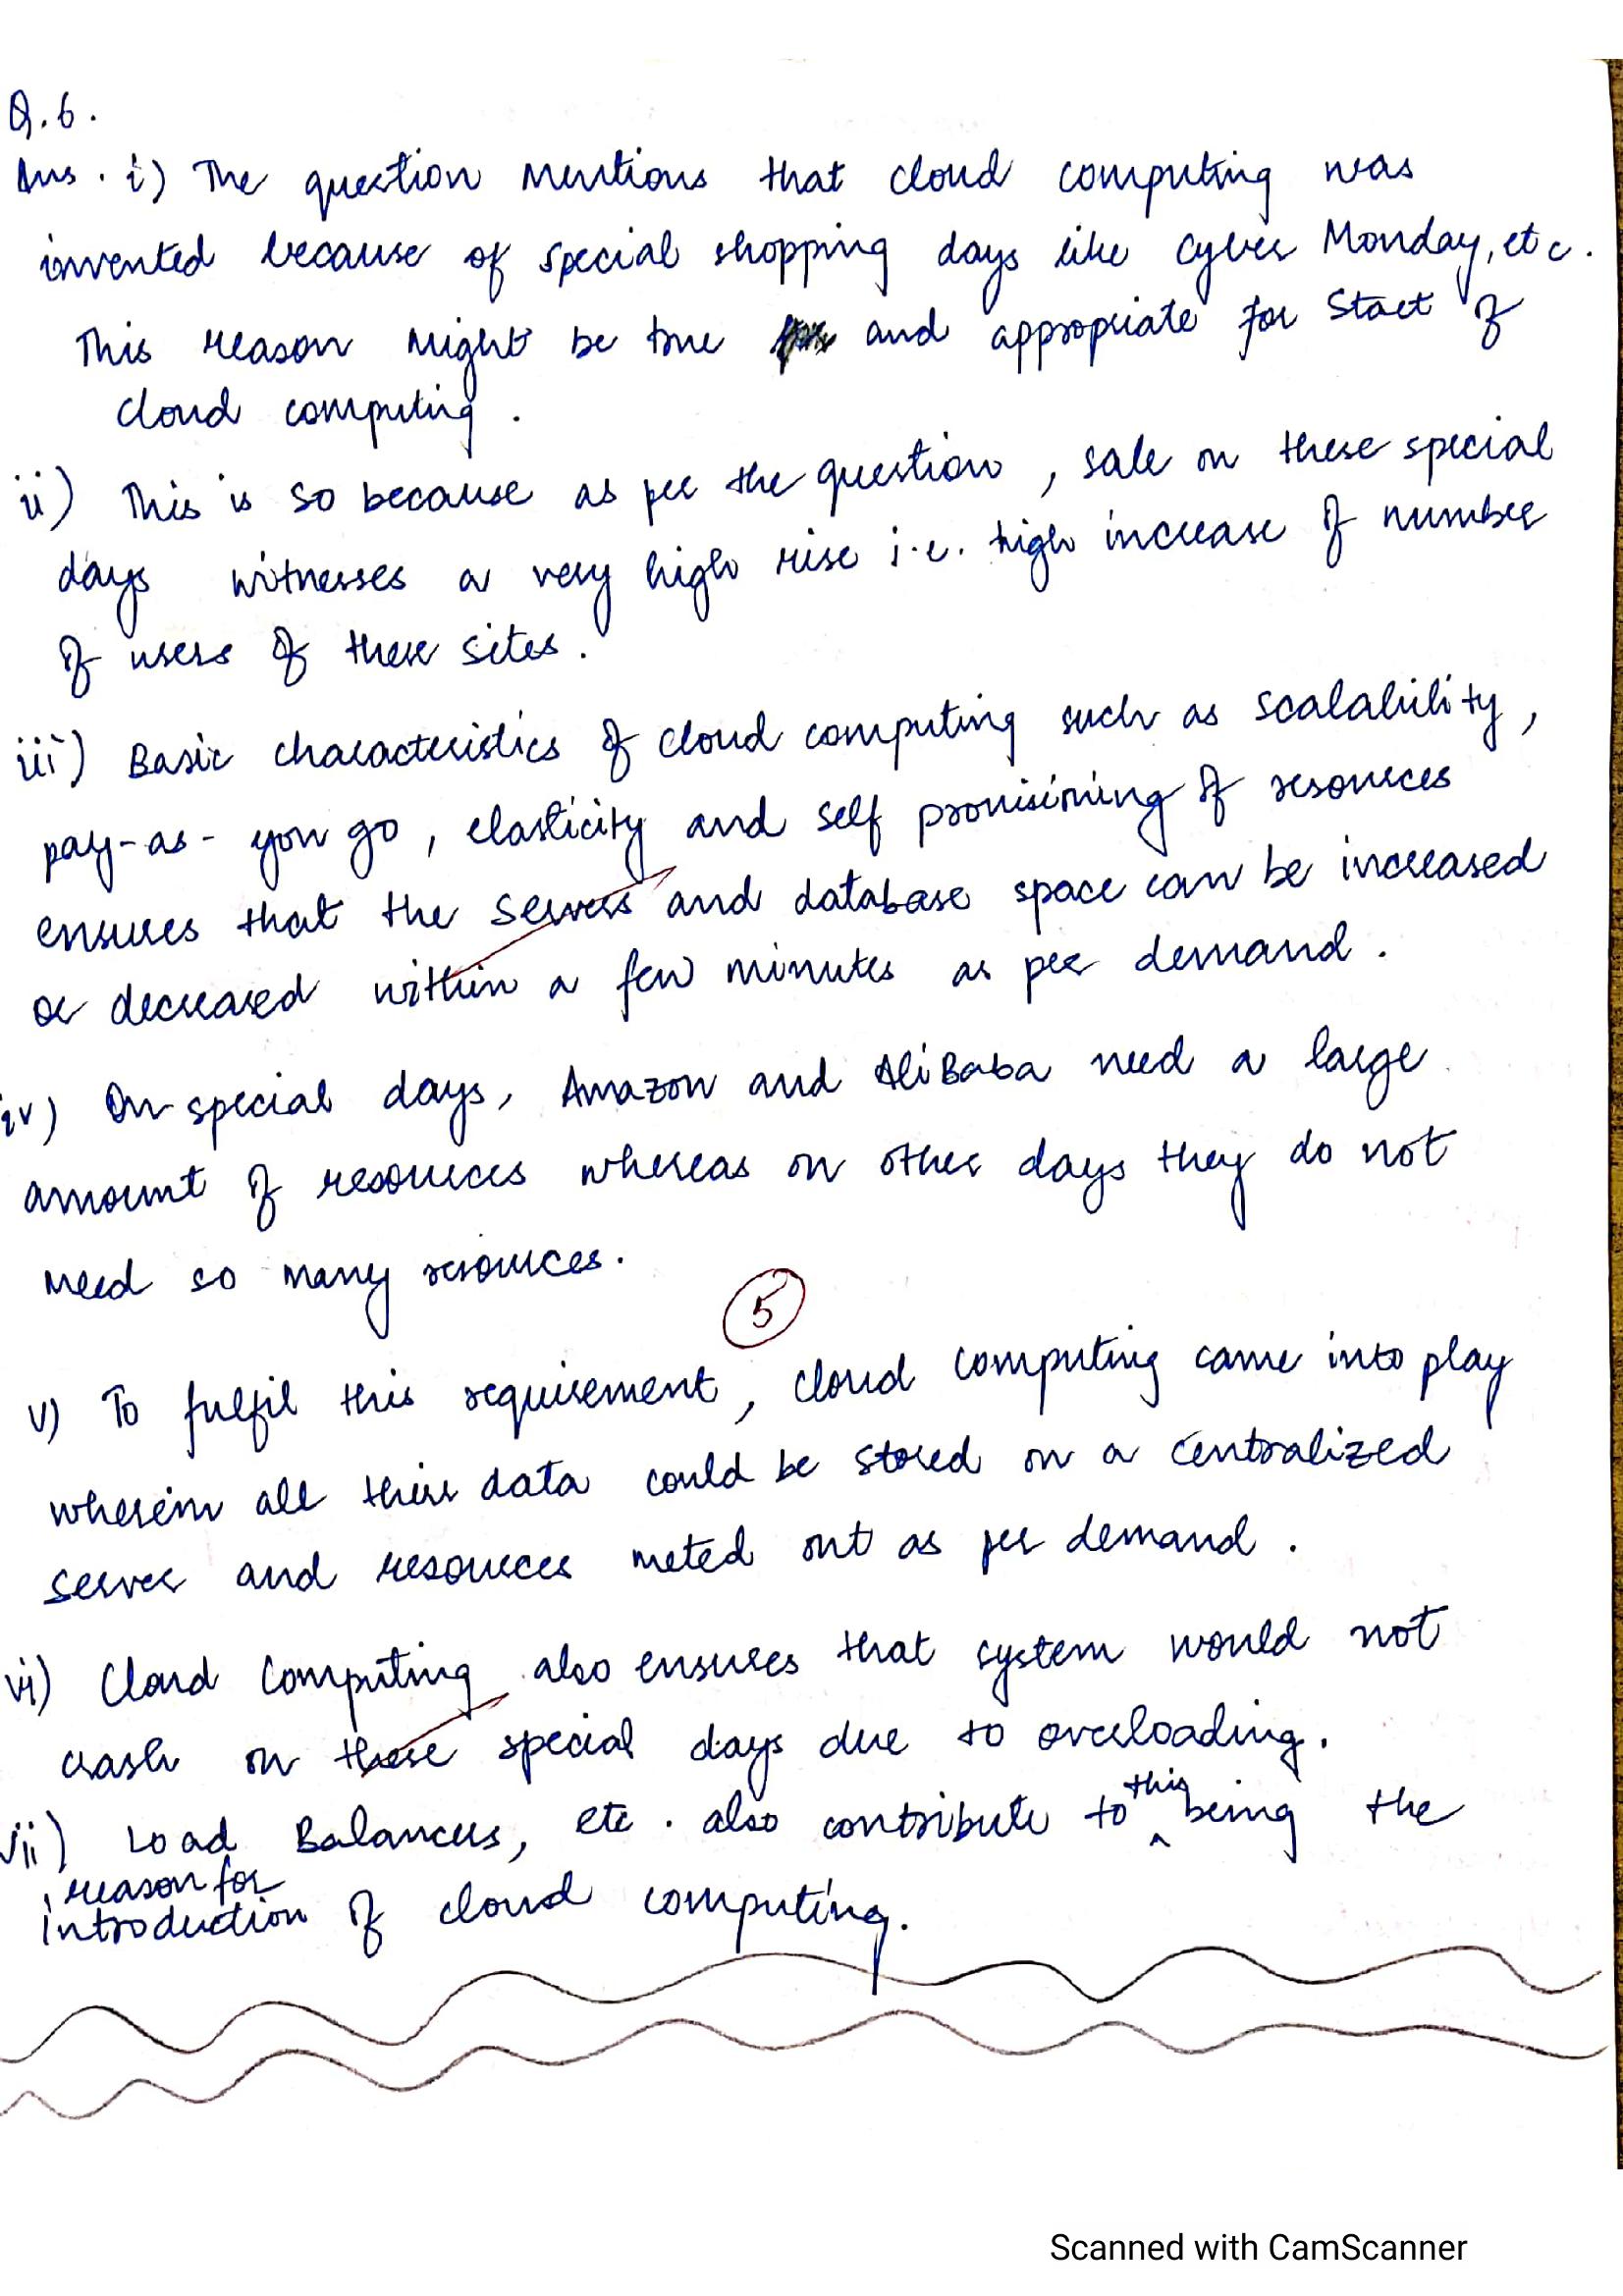 Q.6.
Ans. i) The question mentions that cloud computing was
invented because of special shopping days like cyber Monday, etc.
This reason might be true and appropriate for start of
cloud computing.
ii) This is so because as per the question, sale on these special
days witnesses a very high rise i.e. high increase of number
of users of these sites.
iii) Basic characteristics of cloud computing such as scalability,
pay-as-you go, elasticity and self provisioning of resources
ensures that the servers and database space can be increased
or decreased within a few minutes as per demand.
iv) On special days, Amazon and AliBaba need a large
amount of resources whereas on other days they do not
need so many resources.
5
v) To fulfil this requirement, cloud computing came into play
wherein all their data could be stored on a centralized
server and resources meted out as per demand.
vi) Cloud Computing also ensures that system would not
crash on these special days due to overloading.
vii) Load Balancers, etc. also contribute to this being the
reason for
introduction of cloud computing.
Scanned with CamScanner